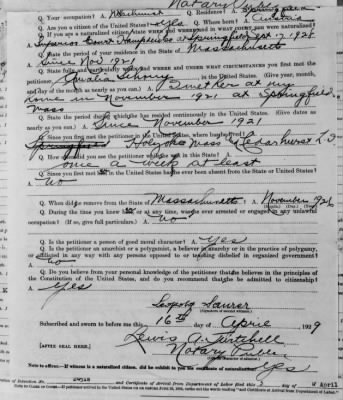 Notary Public
Q. Your occupation? A. Machinist Q. Residence?
Q. Are you a citizen of the United States? yes Q. Where born? A. Austria
Q. If you are a naturalized citizen, state WHEN AND WHERE AND IN WHAT COURT you were naturalized?
Superior Court Springfield 17, 1928
Q. State the period of your residence in the State of Massachusetts
A. Since Nov 1921
Q. State fully and particularly WHERE AND UNDER WHAT CIRCUMSTANCES you first met the
petitioner, Amalia , in the United States. (Give year, month,
and day of the month as nearly as you can.) A. I met her at my
home in November 1921 at Springfield
Mass
Q. State the period during which he has resided continuously in the United States. (Give dates as
nearly as you can.) A. Since November 1921
Q. Since you first met the petitioner in the United States, where has he lived? A.
Springfield Holyoke Mass Cedarhurst L I
Q. How often did you see the petitioner while in this State?
A. once a week at least
Q. Since you first met has he ever been absent from the State or United States?
A. No
Q. When did he remove from the State of Massachusetts? A. November 1926
Q. During the time you knew or at any time, was he ever arrested or engaged in any unlawful
occupation? (If so, give full particulars.) A. No
Q. Is the petitioner a person of good moral character? A. Yes
Q. Is the petitioner an anarchist or a polygamist, a believer in anarchy or in the practice of polygamy,
or affiliated in any way with any persons opposed to or teaching disbelief in organized government?
A. No
Q. Do you believe from your personal knowledge of the petitioner that he believes in the principles of
the Constitution of the United States, and do you recommend that he be admitted to citizenship?
A. Yes
Leopold Saurer
(Signature of naturalized second citizen.)
Subscribed and sworn to before me this 16th day of April 1929
Lewis A. Twitchell
[AFFIX SEAL HERE.] Notary Public
Note to officer.—If witness is a naturalized citizen, did he exhibit to you his certificate of naturalization? Yes
of Intention No. and Certificate of Arrival from Department of Labor filed this day of April